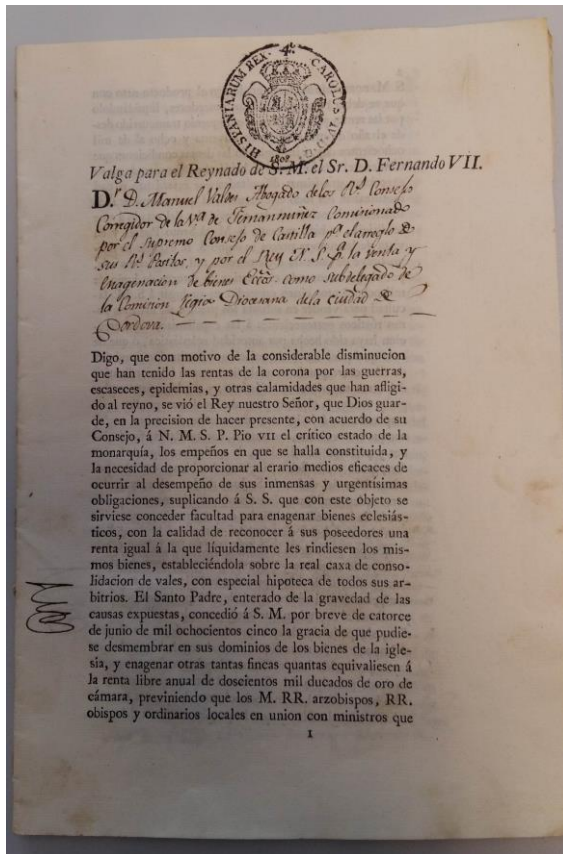 HISPANIARUM REX. 4º. CAROLUS. IV. D. G.
1808
Valga para el Reynado de S. M. el Sr. D. Fernando VII.
D.r D. Manuel Valdes Abogado delos R.s Consejos
Corregidor de la V.a de Fernannuñez Comisionado
por el Supremo Consejo de Castilla p.a el arreglo de
sus R.s Positos, y por el Rey N. S. p.a la venta y
Enagenacion de bienes Ecc.cos como Subdelegado de
la Comision Regia Diocesana dela Ciudad de
Cordova.
Digo, que con motivo de la considerable disminucion
que han tenido las rentas de la corona por las guerras,
escaseces, epidemias, y otras calamidades que han afligi-
do al reyno, se vió el Rey nuestro Señor, que Dios guar-
de, en la precision de hacer presente, con acuerdo de su
Consejo, á N. M. S. P. Pio VII el crítico estado de la
monarquía, los empeños en que se halla constituida, y
la necesidad de proporcionar al erario medios eficaces de
ocurrir al desempeño de sus inmensas y urgentísimas
obligaciones, suplicando á S. S. que con este objeto se
sirviese conceder facultad para enagenar bienes eclesiás-
ticos, con la calidad de reconocer á sus poseedores una
renta igual á la que líquidamente les rindiesen los mis-
mos bienes, estableciéndola sobre la real caxa de conso-
lidacion de vales, con especial hipoteca de todos sus ar-
bitrios. El Santo Padre, enterado de la gravedad de las
causas expuestas, concedió á S. M. por breve de catorce
de junio de mil ochocientos cinco la gracia de que pudie-
se desmembrar en sus dominios de los bienes de la igle-
sia, y enagenar otras tantas fincas quantas equivaliesen á
la renta libre anual de doscientos mil ducados de oro de
cámara, previniendo que los M. RR. arzobispos, RR.
obispos y ordinarios locales en union con ministros que
1